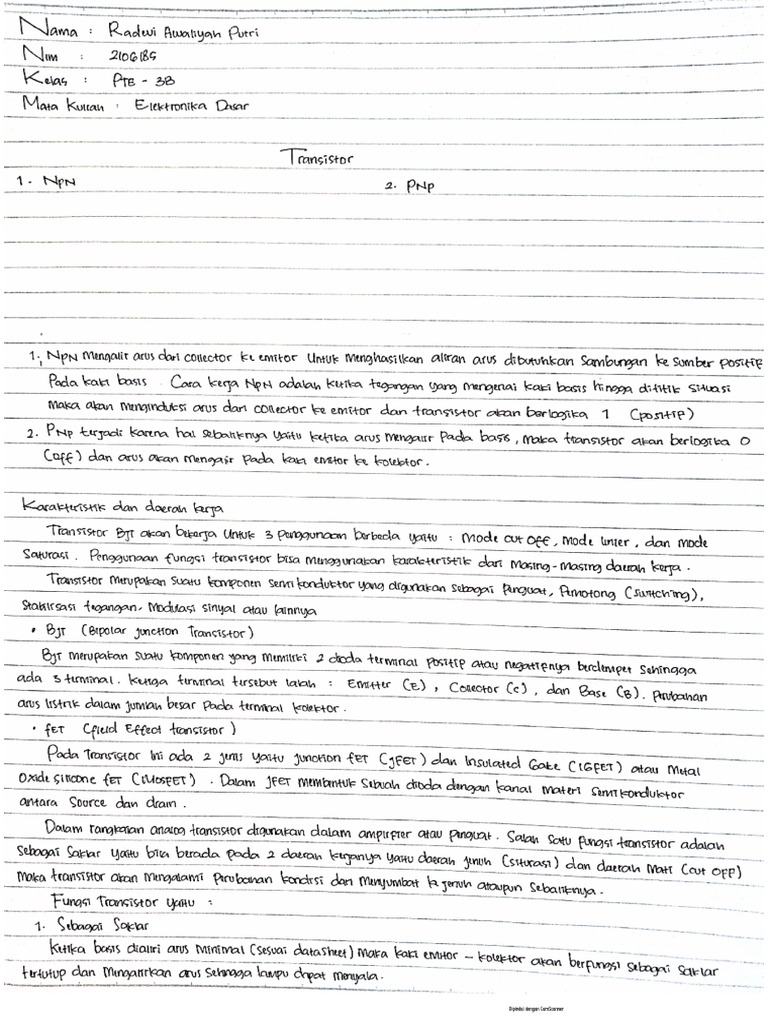 Nama : Radewi Awaliyah Putri
Nim : 2106185
Kelas : PTE - 3B
Mata Kuliah : Elektronika Dasar
Transistor
1. NPN 2. PNP
1. NPN Mengalir arus dari collector ke emitor Untuk menghasilkan aliran arus dibutuhkan Sambungan ke Sumber positif
Pada kaki basis. Cara kerja NPN adalah ketika tegangan yang mengenai kaki basis hingga dititik Situasi
maka akan menginduksi arus dari collector ke emitor dan transistor akan berlogika 1 (positif)
2. PNP terjadi karena hal sebaliknya yaitu ketika arus mengalir Pada basis, maka transistor akan berlogika 0
(off) dan arus akan mengalir Pada kaki emitor ke kolektor.
Karakteristik dan daerah kerja
Transistor BJT akan bekerja Untuk 3 Penggunaan berbeda yaitu : Mode cut off, Mode linier, dan mode
Saturasi. Penggunaan fungsi transistor bisa menggunakan karakteristik dari Masing-Masing daerah kerja.
Transistor Merupakan Suatu komponen Semi konduktor yang digunakan sebagai Penguat, Pemotong (switching),
Stabilisasi tegangan, Modulasi sinyal atau lainnya
• BJT (Bipolar Junction Transistor)
BJT merupakan suatu komponen yang memiliki 2 dioda terminal positif atau negatifnya berdempet Sehingga
ada 3 terminal. Ketiga terminal tersebut ialah : Emitter (E), Collector (C), dan Base (B). Perubahan
arus listrik dalam jumlah besar Pada terminal kolektor.
• FET (field Effect transistor)
Pada Transistor Ini ada 2 jenis yaitu junction FET (JFET) dan Insulated Gate (IGFET) atau Metal
Oxide silicone FET (MOSFET). Dalam JFET membantuk Sebuah dioda dengan kanal materi Semikonduktor
antara Source dan drain.
Dalam rangkaian analog transistor digunakan dalam amplifier atau Penguat. Salah Satu fungsi transistor adalah
Sebagai Saklar Yaitu bila berada pada 2 daerah kerjanya Yaitu daerah jenuh (Siturasi) dan daerah Mati (cut off)
Maka transistor akan Mengalami Perubahan kondisi dari Menyumbat ke jenuh ataupun Sebaliknya.
Fungsi Transistor Yaitu :
1. Sebagai Saklar
Ketika basis dialiri arus Minimal (Sesuai datasheet) Maka kaki emitor - kolektor akan berfungsi Sebagai Saklar
tertutup dan Mengalirkan arus Sehingga lampu dapat Menyala.
Dipindai dengan CamScanner